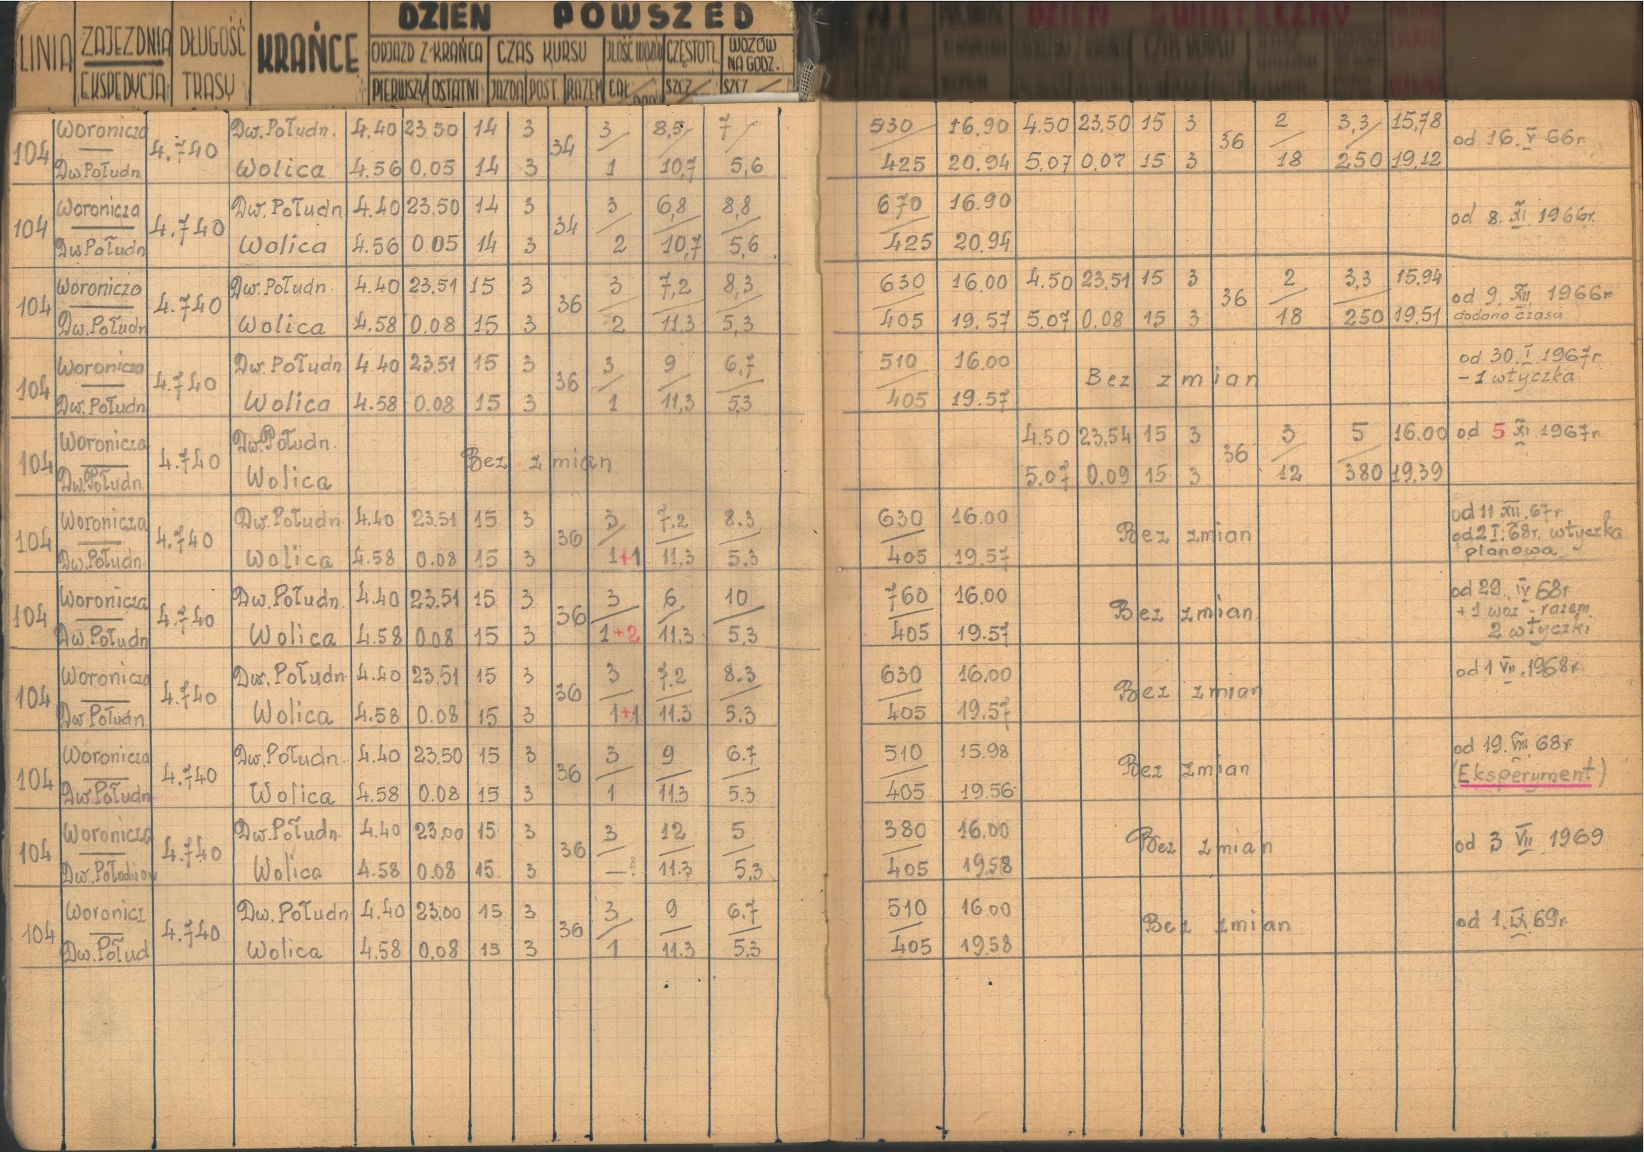 DZIEŃ POWSZED
LINIA ZAJEZDNIA DŁUGOŚĆ KRAŃCE ODJAZD Z KRAŃCA CZAS KURSU ILOŚĆ WOZÓW CZĘSTOTL. WOZÓW NA GODZ.
EKSPEDYCJA TRASY PIERWSZY OSTATNI JAZDA POST. RAZEM CAŁ SZCZ SZCZ
DZIEŃ ŚWIĄTECZNY
Woronicza Dw. Połudn. 4.40 23.50 14 3 3/ 8,5/ 7/ 530/ 16.90 4.50 23,50 15 3 2/ 3,3/ 15,78
104 4.740 34 36 od 16. V 66r
Dw Połudn Wolica 4.56 0.05 14 3 1 10,7 5,6 425 20.94 5,07 0.07 15 3 18 250 19.12
Woronicza Dw. Połudn 4.40 23.50 14 3 3/ 6,8/ 8,8/ 670/ 16.90
104 4.740 34 od 8. XI 1966r.
Dw Połudn Wolica 4.56 0.05 14 3 2 10,7 5,6 425 20.94
Woronicza Dw. Połudn 4.40 23.51 15 3 3/ 7,2/ 8,3/ 630/ 16,00 4.50 23,51 15 3 2/ 3,3/ 15.94
104 4.740 36 36 od 9. XII 1966r
Dw. Połudn Wolica 4.58 0.08 15 3 2 11.3 5,3 405 19.57 5,07 0.08 15 3 18 250 19,51 dodano czasu
Woronicza Dw Połudn 4.40 23.51 15 3 3/ 9/ 6,7/ 510/ 16.00 od 30. I 1967r
104 4.740 36 Bez zmian – 1 wtyczka
Dw. Połudn Wolica 4.58 0.08 15 3 1 11,3 5.3 405 19.57
Woronicza Dw. Połudn. 4.50 23,54 15 3 3/ 5/ 16.00 od 5 XI 1967r
104 4.740 Bez zmian 36
Dw. Połudn Wolica 5.07 0.09 15 3 12 380 19,39
Woronicza Dw. Połudn 4.40 23.51 15 3 3/ 7.2/ 8.3/ 630/ 16.00 od 11 XII. 67r
104 4.740 36 Bez zmian od 2 I. 68r. wtyczka
Dw. Połudn Wolica 4.58 0.08 15 3 1+1 11.3 5.3 405 19.57 planowa
Woronicza Dw. Połudn. 4.40 23.51 15 3 3/ 6/ 10/ 760/ 16.00 od 29. IV 68r
104 4.740 36 Bez zmian + 1 wóz - razem
Dw Połudn Wolica 4.58 0.08 15 3 1+2 11.3 5,3 405 19.57 2 wtyczki
Woronicza Dw. Połudn 4.40 23,51 15 3 3/ 7.2/ 8.3/ 630/ 16,00 od 1 VII. 1968r.
104 4.740 36 Bez zmian
Dw. Połudn Wolica 4.58 0.08 15 3 1+1 11.3 5.3 405 19.57
Woronicza Dw. Połudn. 4.40 23.50 15 3 3/ 9/ 6.7/ 510/ 15.98 od 19. VIII 68r
104 4.740 36 Bez zmian (Eksperyment)
Dw. Połudn Wolica 4.58 0.08 15 3 1 11.3 5.3 405 19.56
Woronicza Dw. Połudn. 4.40 23,00 15 3 3/ 12/ 5/ 380/ 16.00
104 4.740 36 Bez zmian od 3 VII 1969
Wolica 4.58 0.08 15 3 – 11.3 5,3 405 19.58
Woronicz Dw. Połudn 4.40 23,00 15 3 3/ 9/ 6.7/ 510/ 16.00
104 4.740 36 Bez zmian od 1. IX 69r
Dw. Połud Wolica 4.58 0,08 15 3 1 11.3 5.3 405 19.58